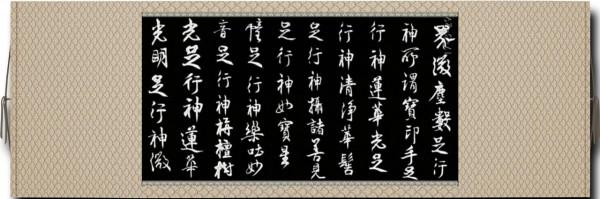 界微塵數足行
神所謂寶印手足
行神蓮華光足
行神清淨華髻
足行神攝諸善見
足行神妙寶星
幢足行神樂吐妙
音足行神栴檀樹
光足行神蓮華
光明足行神微